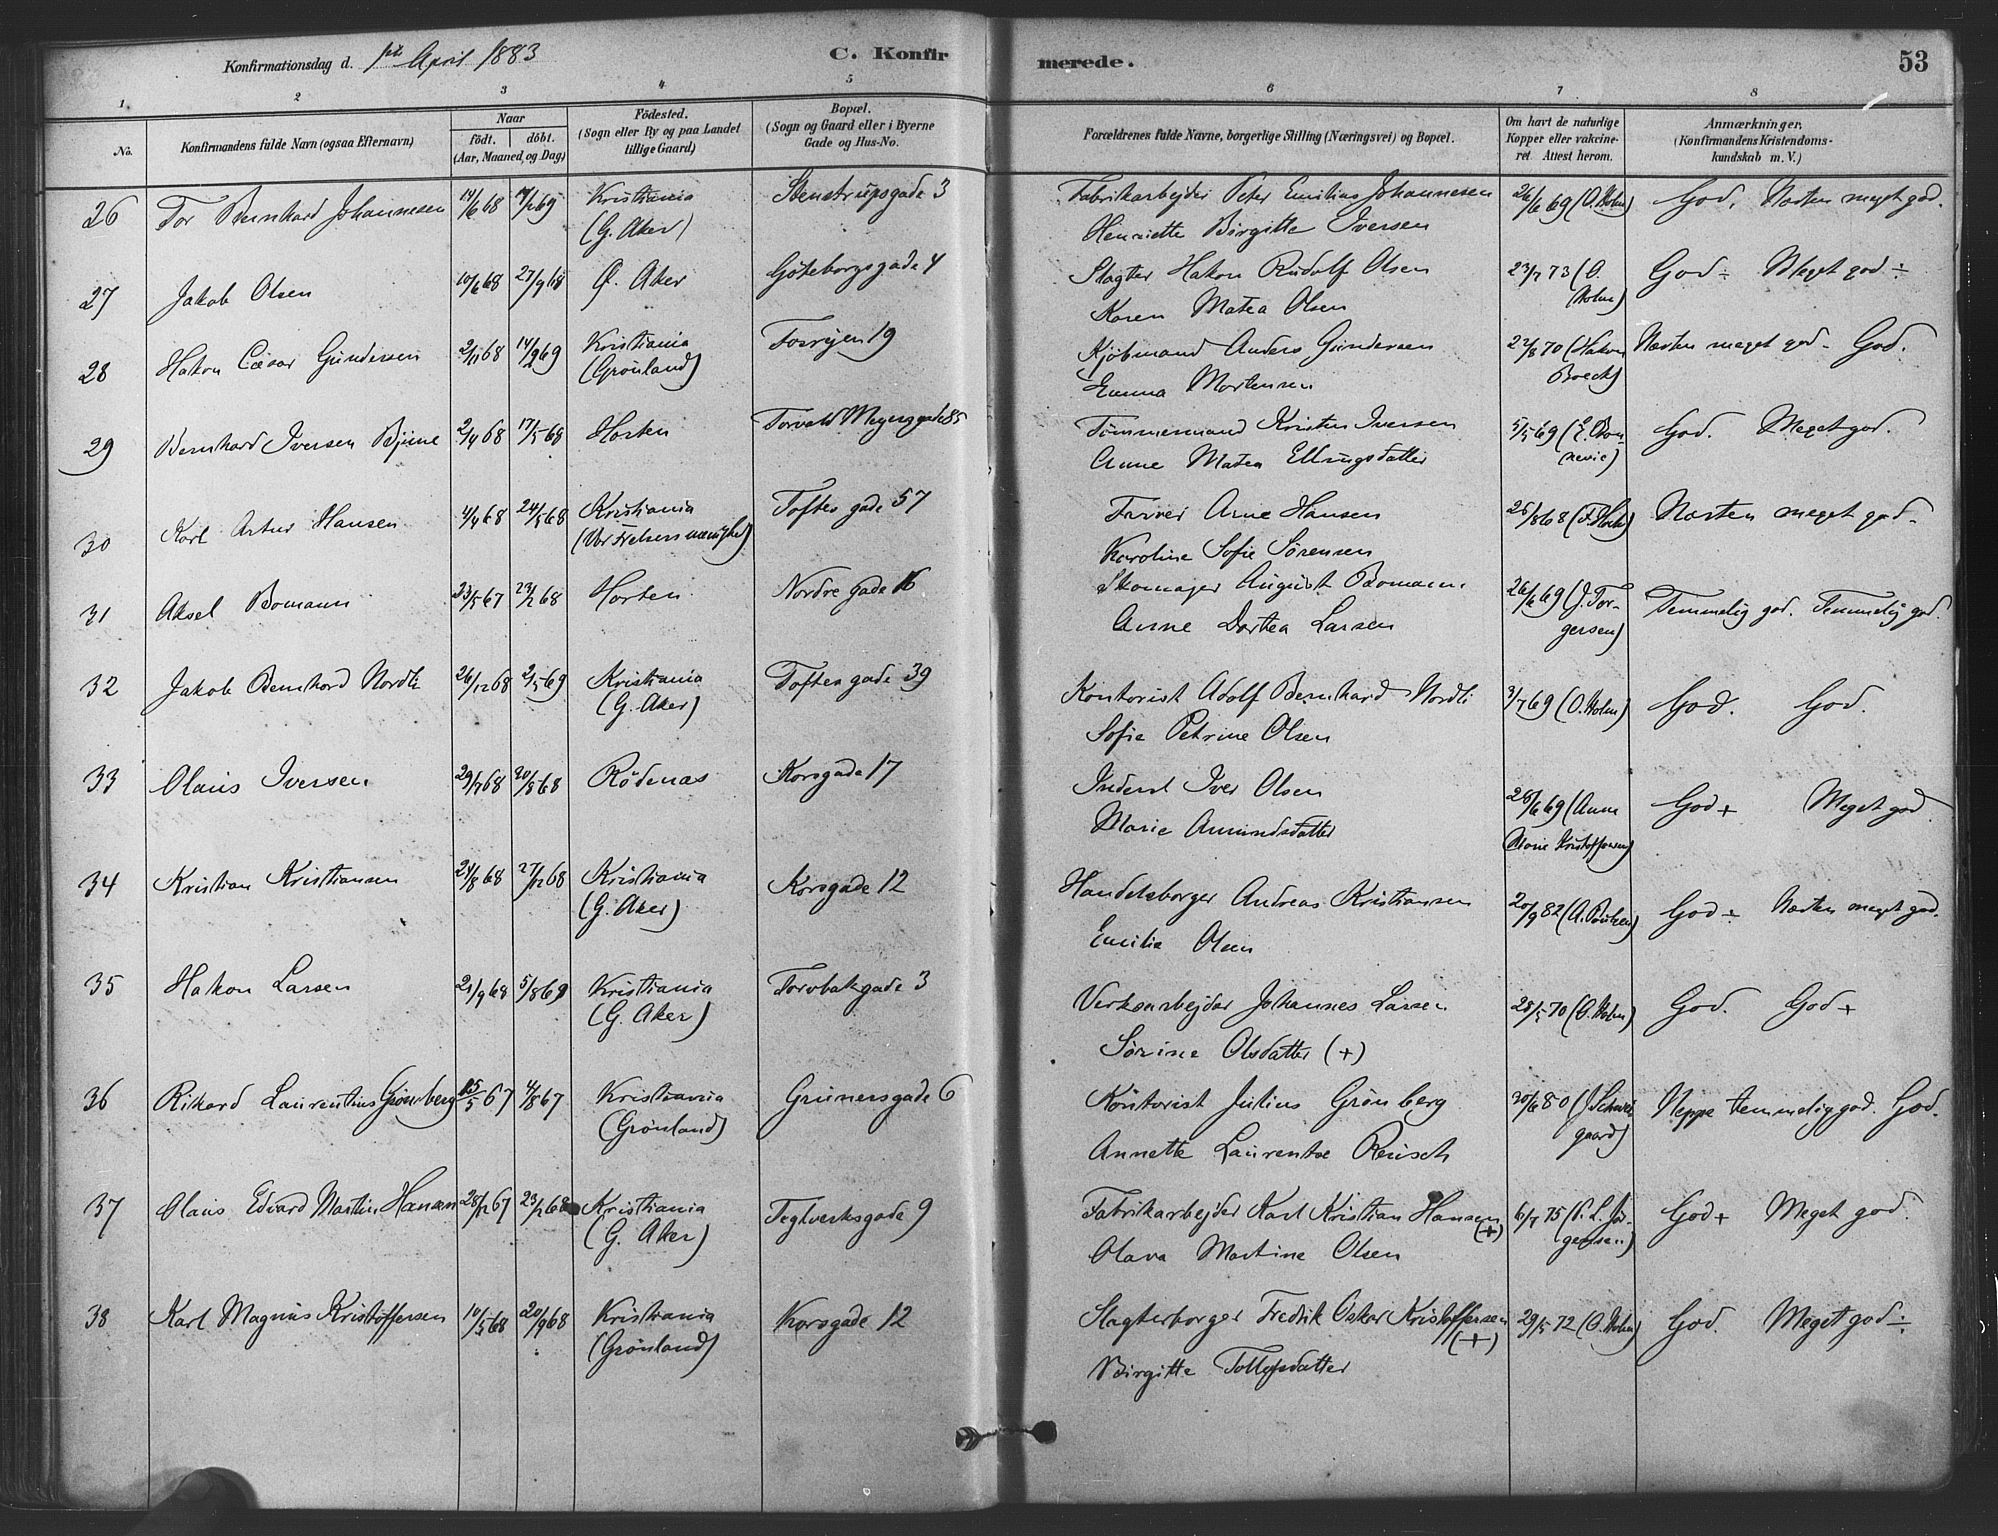 Konfirmationsdag d. 1ste April 1883 C. Konfirmerede. 53
1 2 3 4 5 6 7 8
No. Konfirmandens fulde Navn (ogsaa Efternavn) Naar født. døbt. (Aar, Maaned, og Dag) Fødested. (Sogn eller By og paa Landet tillige Gaard) Bopæl. (Sogn og Gaard eller i Byerne Gade og Hus-No. Forældrenes fulde Navne, borgerlige Stilling (Næringsvei) og Bopæl. Om havt de naturlige Kopper eller vakcineret Attest herom. Anmærkninger, (Konfirmandens Kristendomskundskab m. V.)
26 Tor Bernhard Johannesen 14/6 68 69 Kristiania Stenstrupsgade 3 Fabrikarbejder Peter Emilius Johannesen 26/6 69 (O. Holm) God. Næsten meget god.
(G. Aker) Henriette Birgitte Iversen
27 Jakob Olsen 10/6 68 27/9 68 Ø. Aker Göteborgsgade 4 Slagter Hakon Rudolf Olsen 23/7 73 (O. God ÷ Meget god ÷
Karen Matea Olsen Holm)
28 Hakon Cæsar Gundersen 2/11 68 14/2 69 Kristiania 19 Kjöbmand Anders Gundersen 22/8 70 (Hakon Næsten meget god. God.
(Grönland) Emma Mortensen Boeck)
29 Bernhard Iversen Bjune 2/4 68 17/5 68 Horten Torvald Meyersgade 85 Tömmermand Kristen Iversen 5/5 69 (E. Bon- God. Meget god.
Anne Matea Ellingsdatter nevie)
30 Karl Artur Hansen 4/4 68 24/5 68 Kristiania Toftes gade 57 Farver Arne Hansen 25/8 68 (F. Holst) Næsten meget god.
(Vor Frelsers menighed) Karoline Sofie Sörensen
31 Aksel Bomann 23/5 67 23/2 68 Horten Nordre gade 16 Skomager August Bomann 26/6 69 (J. Tor- Temmelig god. Temmelig god.
Anne Dortea Larsen gersen)
32 Jakob Bernhard Nordli 26/12 68 2/5 69 Kristiania Toftes gade 39 Kontorist Adolf Bernhard Nordli 3/7 69 (O. Holm) God. God.
(G. Aker) Sofie Petrine Olsen
33 Olaus Iversen 29/7 68 30/8 68 Rödenas Korsgade 17 Inderst Iver Olsen 28/6 69 (Anne God + Meget god
Marie Amundsdatter Marie Kristoffersen)
34 Kristian Kristiansen 24/8 68 27/12 68 Kristiania Korsgade 12 Handelsborger Andreas Kristiansen 20/9 82 (A. Poulsen) God ÷ Næsten meget god.
(G. Aker) Emilie Olsen
35 Hakon Larsen 21/9 68 5/8 69 Kristiania Torvbakgade 3 Verksarbejder Johannes Larsen 28/5 70 (O. Holm) God. God +
(G. Aker) Sörine Olsdatter (+)
36 Rikard Laurentius Grönberg 15/5 67 4/8 67 Kristiania Grunersgade 6 Kontorist Julius Grönberg 30/6 80 (J. Schwei- Neppe temmelig god. God.
(Grönland) Annette Laurentse Reusch gaard)
37 Olaus Edvard Martin Hansen 28/12 67 23/2 68 Kristiania Teglverksgade 9 Fabrikarbejder Karl Kristian Hansen (+) 6/7 75 (P. L. Jör- God + Meget god.
(G. Aker) Olava Martine Olsen gensen)
38 Karl Magnus Kristoffersen 10/5 68 20/9 68 Kristiania Korsgade 12 Slagterborger Fredrik Oskar Kristoffersen (+) 29/5 72 (O. Holm) God. Meget god ÷
(Grönland) Birgitte Tollefsdatter